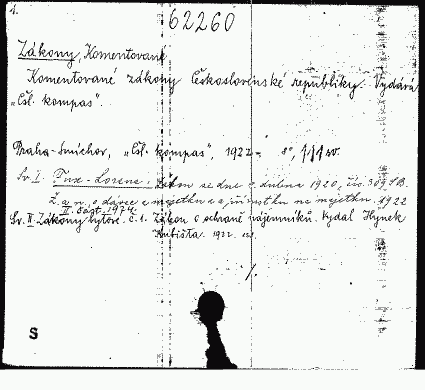 1.
62260
Zákony, Komentované
Komentované zákony Československé republiky. Vydává
„Čsl. kompas".
Praha-Smíchov, „Čsl. kompas", 1922- 8°, sv.
Sv. I. Fux - Lorenz: Zákon ze dne dubna 1920, čís. 309 SB.
z. a n. o dávce z majetku a z přírůstku na majetku. 1922
II. část. 1924.
Sv. II. Zákony bytové. č. 1. Zákon o ochraně nájemníků. Vydal Hynek
Kubišta. 1922.
S